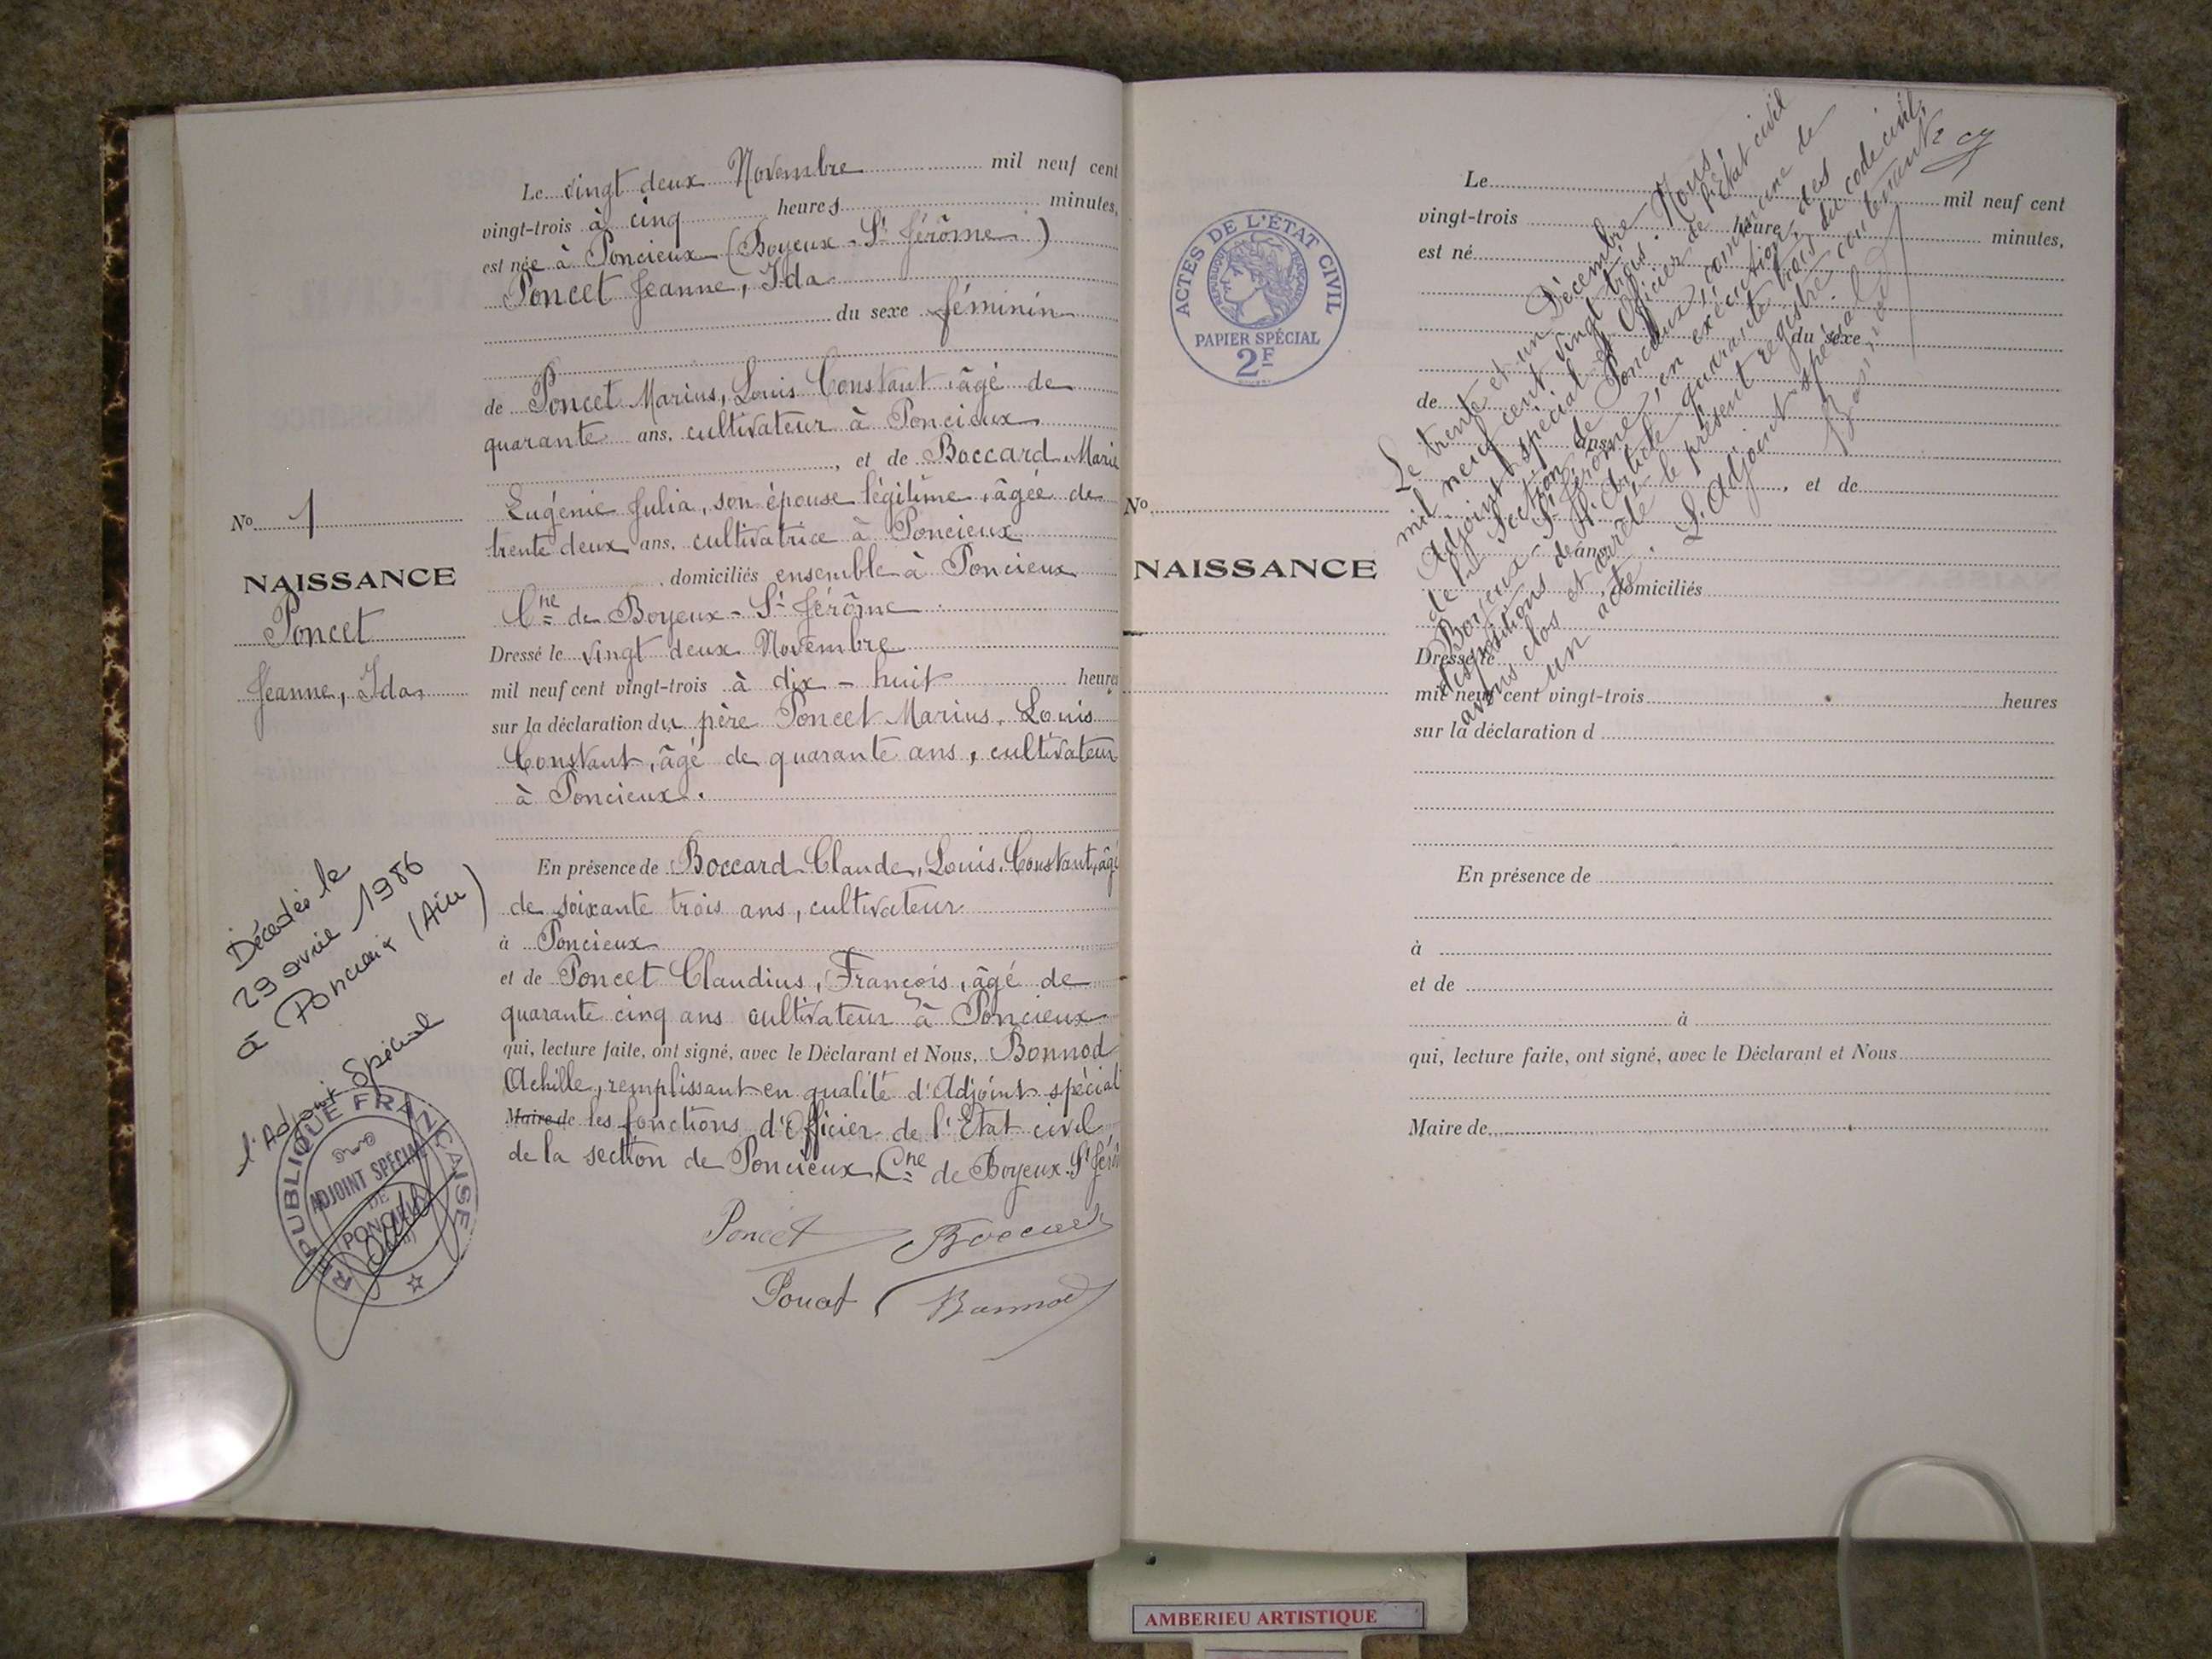 Le vingt deux Novembre mil neuf cent
vingt-trois à cinq heures minutes,
est née à Poncieux (Boyeux-St Jérôme)
Poncet Jeanne, Ida
du sexe féminin
de Poncet Marius, Louis Constant, âgé de
quarante ans, cultivateur à Poncieux
, et de Boccard Marie
Eugénie Julia, son épouse légitime, âgée de
trente deux ans, cultivatrice à Poncieux
, domiciliés ensemble à Poncieux
Cne de Boyeux-St Jérôme
Dressé le vingt deux Novembre
mil neuf cent vingt-trois à dix-huit heures
sur la déclaration du père Poncet Marius, Louis
Constant, âgé de quarante ans, cultivateur
à Poncieux.
En présence de Boccard Claude, Louis, Constant, âgé
de soixante trois ans, cultivateur
à Poncieux
et de Poncet Claudius, François, âgé de
quarante cinq ans cultivateur à Poncieux
qui, lecture faite, ont signé, avec le Déclarant et Nous, Bonnod
Achille, remplissant en qualité d'Adjoint spécial
Maire de les fonctions d'Officier de l'Etat civil
de la section de Poncieux, Cne de Boyeux-St Jérô
Poncet Boccard
Poncet Bonnod
No 1
NAISSANCE
Poncet
Jeanne, Ida
Décédée le
29 avril 1986
à Poncieux (Ain)
l'Adjoint Spécial
RÉPUBLIQUE FRANÇAISE
ADJOINT SPÉCIAL
DE
PONCIEUX
ACTES DE L'ÉTAT CIVIL
RÉPUBLIQUE FRANÇAISE
PAPIER SPÉCIAL
2F
No
NAISSANCE
Le mil neuf cent
vingt-trois heure minutes,
est né
du sexe
de
ans,
, et de
de ans
, domiciliés
Dressé le
mil neuf cent vingt-trois heures
sur la déclaration d
En présence de
à
et de
à
qui, lecture faite, ont signé, avec le Déclarant et Nous
Maire de
Le trente et un Décembre
mil neuf cent vingt trois. Nous,
Adjoint spécial et Officier de l'Etat civil
de la Section de Poncieux, commune de
Boyeux-St Jérôme, en exécution des
dispositions de l'Article quarante trois du code civil,
avons clos et arrêté le présent registre contenant
un acte.
L'Adjoint spécial
Bonnod
AMBERIEU ARTISTIQUE